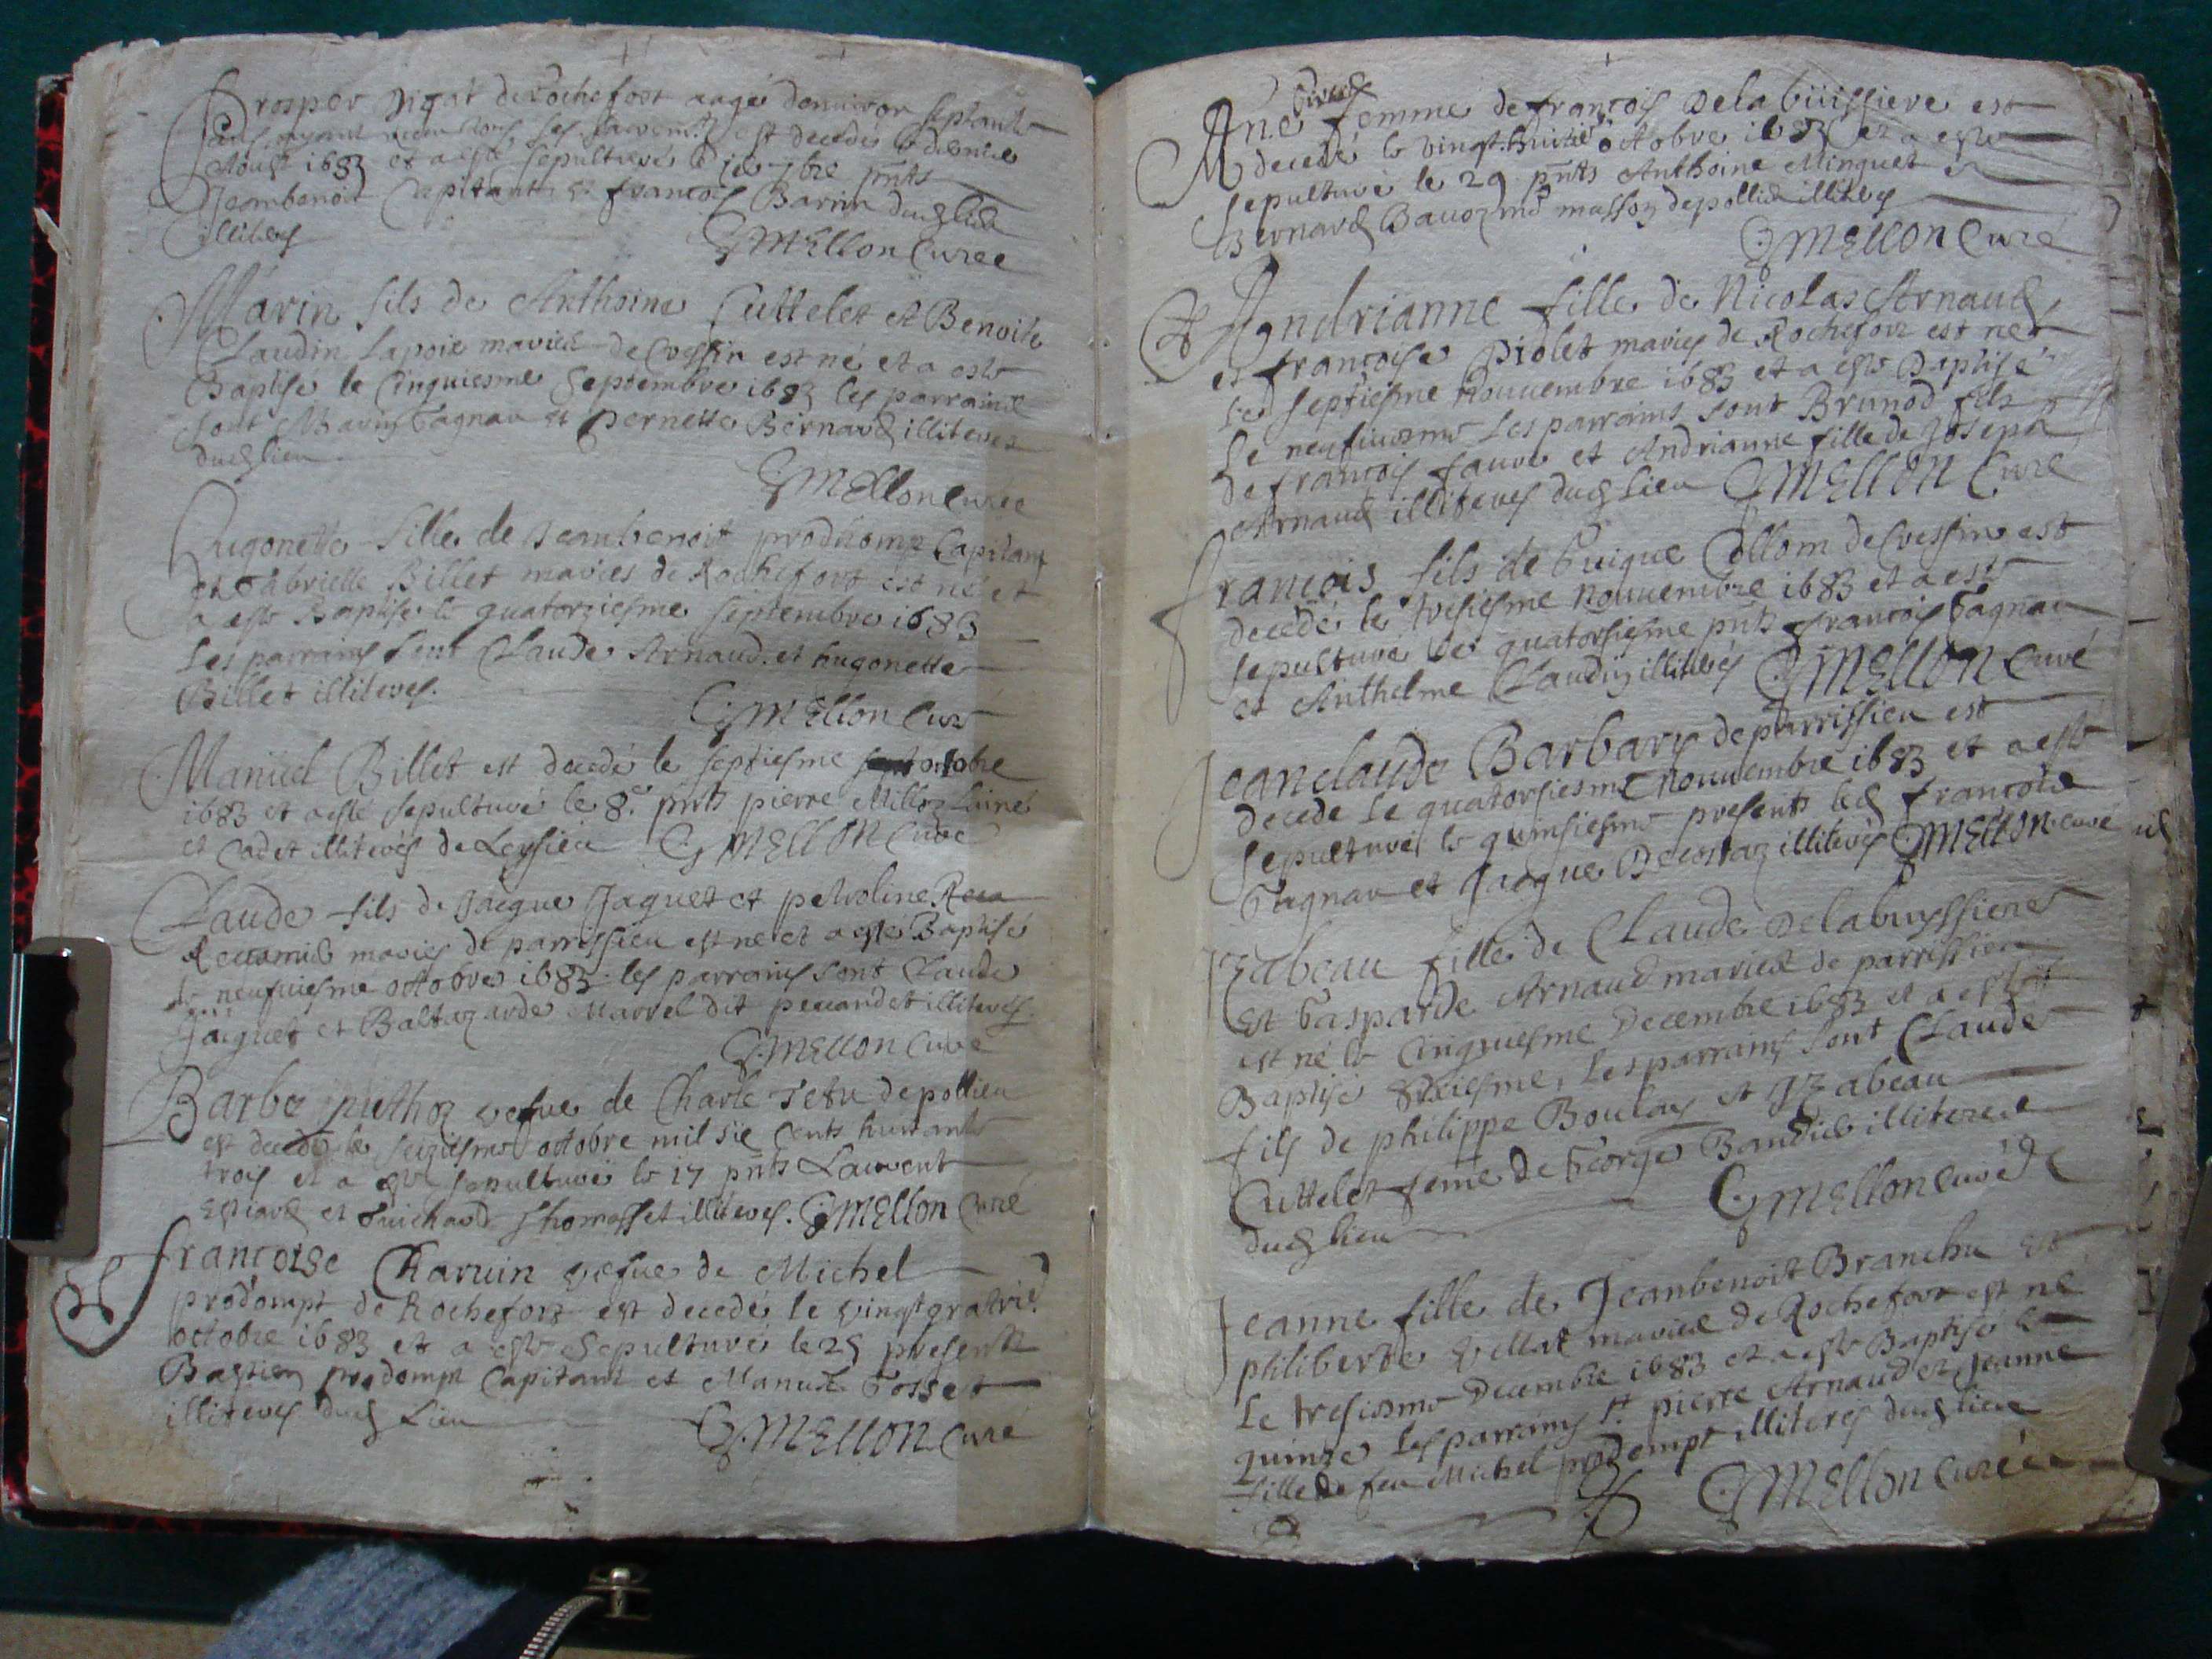 Prosper de Rochefort aagé denuiron septante
ans ayant receu tous ses sacremts est decedé le dernier
Aoust 1683 et a esté sepulturé le 7bre pnts
Jeanbenoit Capitant et francois Barrin dud lieu
illiterés
GMEllon Curee
Marin fils de Anthoine Cuttelet et Benoite
Claudin Lapoie mariés de Cressin est né et a este
Baptise le Cinquiesme Septembre 1683 les parrains
sont Marin Gagnau et pernette Bernard illiteres
dud lieu
GMEllon Curée
Hugonette fille de Jeanbenoit prodhomp Capitant
et Gabrielle Billet mariés de Rochefort est né et
a este Baptise le quatorziesme septembre 1683
Les parrains sont Claude Arnaud et hugonette
Billet illiteres.
GMEllon Cure
Manuel Billet est decedé le septiesme octobre
1683 et a esté sepulturé le 8e pnts pierre Millioz Lainé
et Cadet illiterés de Leysieu GMEllon Curé
Claude fils de Jacque Jaquet et petroline
Recamié mariés de parrissieu est né et a esté Baptisé
le neufuiesme octobre 1683 les parrains sont Claude
Jaquet et Baltazarde Marrel dit peuandet illiterés.
G.MEllon Curé
Barbe puthoz vefue de Charle Tetu de pollieu
est decedé le seiziesme octobre mil sie Cents huitante
trois et a este sepulturé le 17 pnts Laurent
et Guichard Thomasset illiteres. GMEllon Curé
francoise Charuin vefue de Michel
prodompt de Rochefort est decedé le vingt qratrie
octobre 1683 et a este Sepulturé le 25 presents
Bastien prodompt Capitant et Manuel Gosset
illiteres dud Lieu
G.MEllon Curé
Girard
Ane femme de francois Dela büissiere est
decedé le vingt huitie octobre 1683 et a este
sepulturé le 29 pnts Anthoine Minguet et
Bernard Bauoz me masson de pollieu illiteres
GMEllon Curé
Andrianne fille de Nicolas Arnaud
et francoise Piolet mariés de Rochefort est neé
Le septiesme Nouuembre 1683 et a este Baptisé
le neufuiesme Les parrains sont Brunod fils
de francois faure et Andrianne fille de Joseph
Arnaud illiteres dud Lieu GMEllon Curé
francois fils de Guigue Collom de Cressin est
decedé le tresiesme nouuembre 1683 et a este
sepulturé le quatorsiesme pnts francois Gagnau
et Anthelme Claudin illiterés GMEllon Curé
Jeanclaude Barbary de parrissieu est
decede le quatorsiesme Nouuembre 1683 et a este
sepulturé le quinsiesme presents led francois
Gagnau et Jacque Decostaz illiterés GMEllon curé
Izabeau fille de Claude Delabuyssiere
Et Gasparde Arnaud mariés de parrissieu
est né le Cinquiesme Decembre 1683 et a este
Baptisé sixiesme, Les parrains sont Claude
fils de philippe Boulay et Izabeau
Cuttelet feme de George Baudié illiteres
dud lieu GMEllon Curé
Jeanne fille de Jeanbenoit Branchu et
philiberte Vullat mariés de Rochefort est né
Le tresiesme Decembre 1683 et a este Baptisé le
quinze Les parrains st pierre Arnaud et Jeanne
fille de feu Michel prodompt illiterés dud lieu
GMEllon Curée